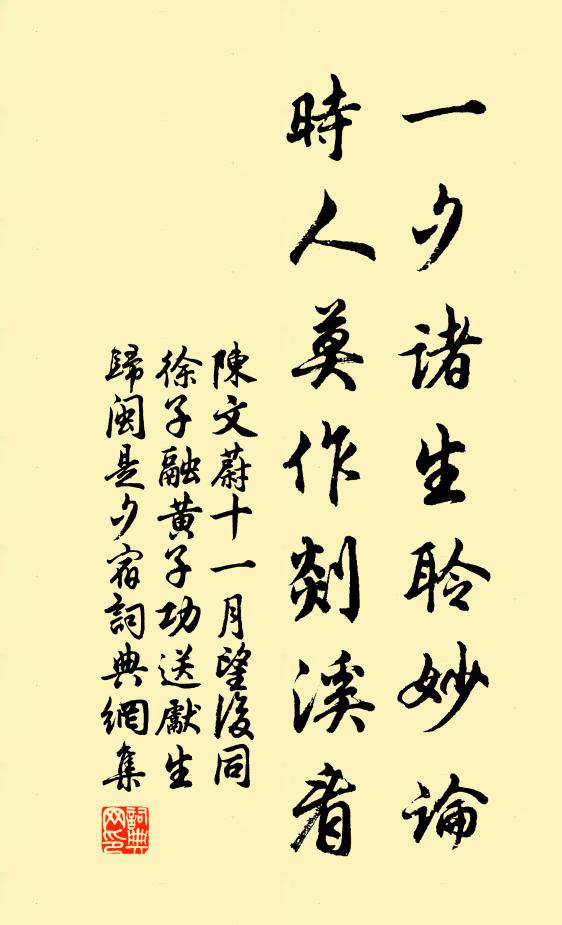 一夕諸生聆妙論
時人莫作剡溪看
陳文蔚十一月望後同
徐子融黃子功送獻生
歸閩是夕宿詞典網集
詞典網印